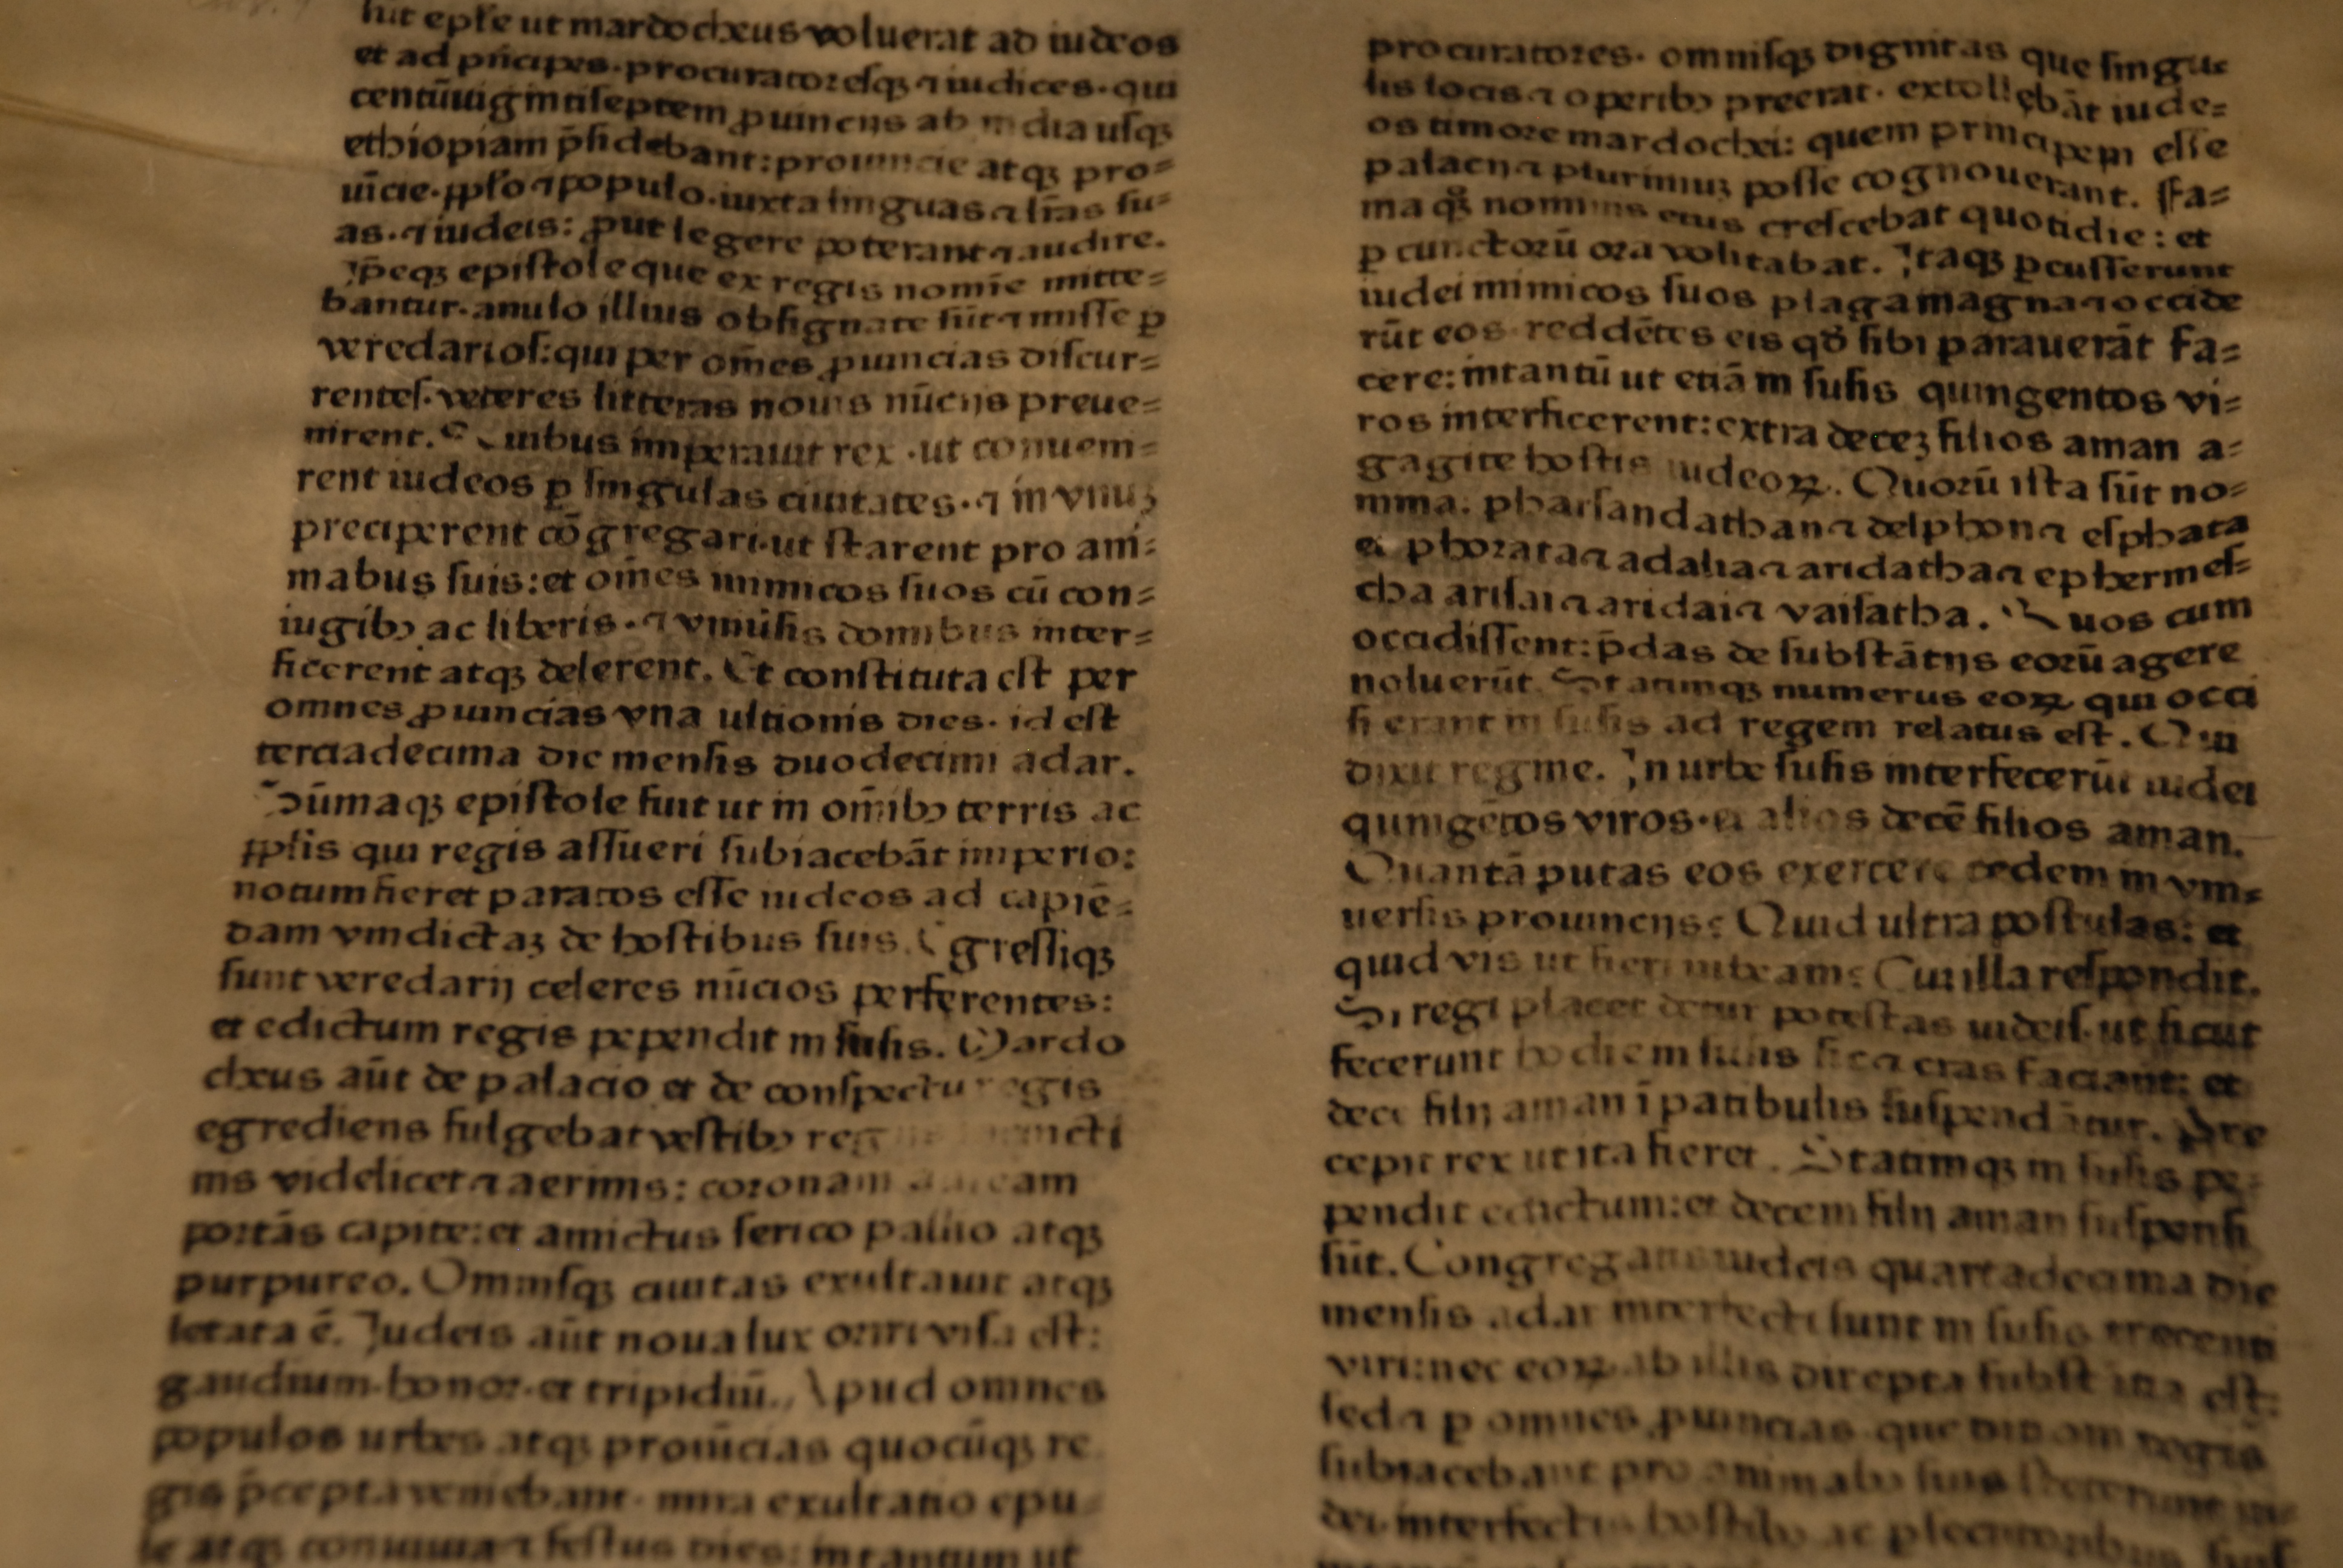 epl̄e ut mardocheus voluerat ad iudeos
et ad p̄ncipes·procuratoresqꝫ ⁊ iudices·qui
centūuigintiseptem ꝓuincijs ab india usqꝫ
ethiopiam p̄sidebant:prouincie atqꝫ pro=
uīcie·ꝓplo ⁊ populo·iuxta linguas ⁊ lr̄as su=
as·⁊ iudeis: ꝓut legere poterant ⁊ audire.
Ip̄eqꝫ epistole que ex regis nomīe mitte=
bantur·anulo illius obsignate sūt ⁊ misse ꝑ
veredarios:qui per om̄es ꝓuincias discur=
rentes·veteres litteras nouis nūcijs preue=
nirent. Quibus imperauit rex·ut conueni=
rent iudeos ꝑ singulas ciuitates·⁊ in vnuꝫ
preciperent cōgregari·ut starent pro ani=
mabus suis:et om̄es inimicos suos cū con=
iugibꝰ ac liberis·⁊ vniūsis domibus inter=
ficerent atqꝫ delerent. Et constituta est per
omnes ꝓuincias vna ultionis dies·id est
terciadecima die mensis duodecimi adar.
Sūmaqꝫ epistole fuit ut in om̄ibꝰ terris ac
ꝓplis qui regis assueri subiacebāt imperio:
notum fieret paratos esse iudeos ad capiē=
dam vindictaꝫ de hostibus suis. Egressiqꝫ
sunt veredarij celeres nūcios perferentes:
et edictum regis pependit in susis. Mardo
cheus aūt de palacio et de conspectu regis
egrediens fulgebat vestibꝰ
nis videlicet ⁊ aerinis: coronam auream
portās capite:et amictus serico pallio atqꝫ
purpureo. Omnisqꝫ ciuitas exultauit atqꝫ
letata ē. Iudeis aūt noua lux oriri visa est:
gaudium·honor·et tripidiū. Apud omnes
populos urbes atqꝫ prouīcias quocūqꝫ re
gis p̄cepta veniebant·mira exultatio epu=
le atqꝫ conuiuia ⁊ festus dies: intantum ut
procuratores· omnisqꝫ dignitas que singu=
lis locis ⁊ operibꝰ preerat· extollebāt iude=
os timore mardochei: quem principem esse
palacij ⁊ plurimuꝫ posse cognouerant. Fa=
ma qꝫ nominis eius crescebat quotidie: et
ꝑ cunctorū ora volitabat. Itaqꝫ ꝑcusserunt
iudei inimicos suos plaga magna ⁊ occide
rūt eos·reddētes eis qd̄ sibi parauerāt fa=
cere:intantū ut etiā in susis quingentos vi=
ros interficerent:extra deceꝫ filios aman a=
gagite hostis iudeoꝝ. Quorū ista sūt no=
mina: pharsandathan ⁊ delphon ⁊ esphata
⁊ phorata ⁊ adalia ⁊ aridatha ⁊ ephermes=
tha arisai ⁊ aridai ⁊ vaisatha. Quos cum
occidissent:p̄das de substātijs eorū agere
noluerūt. Statimqꝫ numerus eoꝝ qui occi
si erant in susis ad regem relatus est. Qui
dixit regine. In urbe susis interfecerūt iudei
quingētos viros·et alios decē filios aman.
Quantā putas eos exercere cedem in vni=
uersis prouincijs: Quid ultra postulas: et
quid vis ut fieri iubeam: Cui illa respondit.
Si regi placet detur potestas iudeis·ut sicut
fecerunt hodie in susis sic ⁊ cras faciant: et
decē filij aman ī patibulis suspendātur. Pre
cepit rex ut ita fieret. Statimqꝫ in susis pe=
pendit edictum:et decem filij aman suspensi
sūt. Congregatis iudeis quartadecima die
mensis adar interfecti sunt in susis trecenti
viri:nec eoꝝ ab illis direpta substātia est:
sed ⁊ ꝑ omnes ꝓuincias que regis
subiacebant pro animabꝰ suis steterunt iu=
dei·interfectis hostibꝰ ac